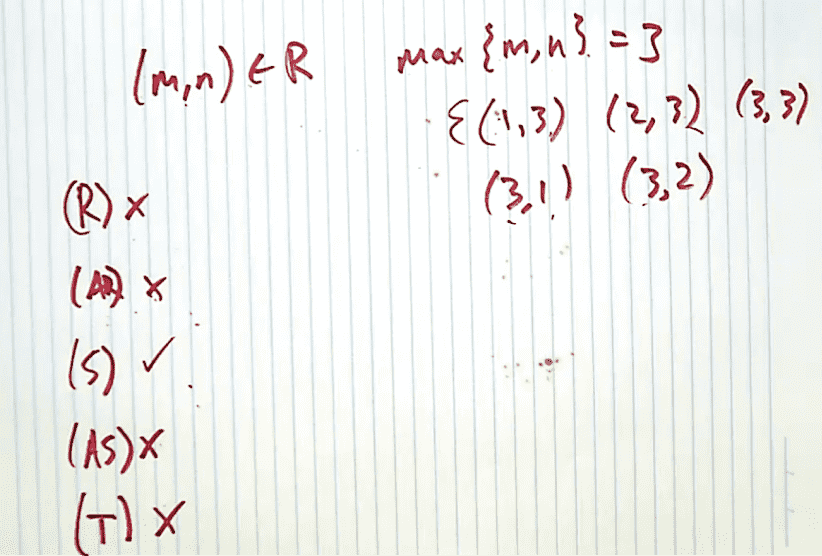 (m,n) ∈ R max {m,n} = 3
{(1,3) (2,3) (3,3)
(3,1) (3,2)
(R) ×
(AR) ×
(S) ✓
(AS) ×
(T) ×